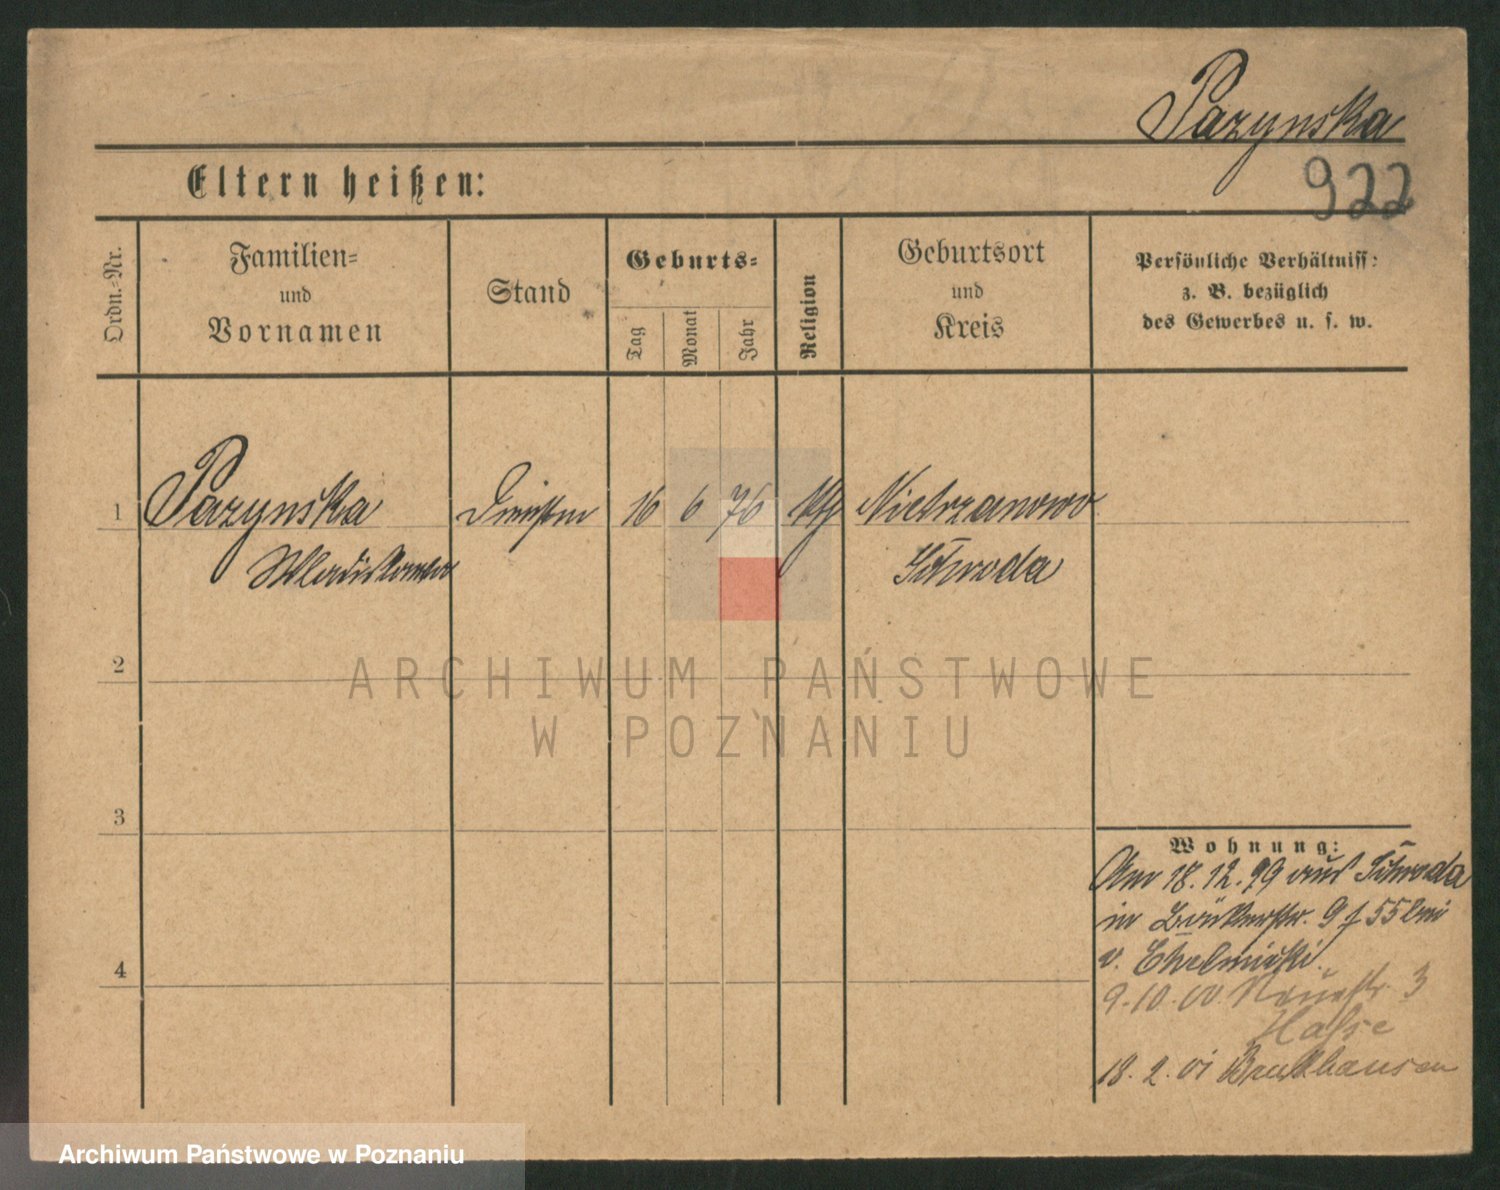 Pazynska
922
Eltern heißen:
Ordn.-Nr.
Familien-
und
Vornamen
Stand
Geburts-
Tag
Monat
Jahr
Religion
Geburtsort
und
Kreis
Persönliche Verhältniss:
z. B. bezüglich
des Gewerbes u. s. w.
1
Pazynska
16
6
76
Kth
Nietrzanowo
Schroda
2
3
4
Wohnung:
Am 18.12.99 aus Schroda
in 9 f 55 bei
v. Chelmicki.
9.10.00 Neuestr. 3
Hasse
18.2.01
ARCHIWUM PAŃSTWOWE
W POZNANIU
Archiwum Państwowe w Poznaniu